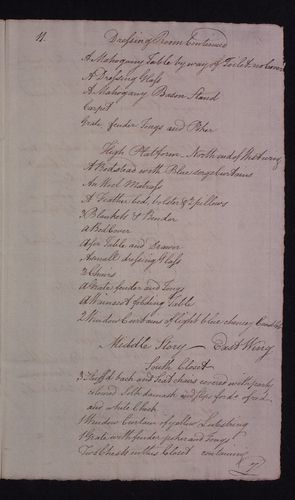 11.
Dressing Room Continued
A Mahogany Table by way of Toilet no Cover
A Dressing Glass
A Mahogany Bason Stand
Carpit
Grate fender Tongs and Poker
High Platform North end of West wing
A Bedstead with Blue serge Curtains
An Wool Matrass
A Feather bed, bolster & 2 pillows
3 Blankets &
A Bed Cover
A fir Table and Drawer
A small dressing Glass
3 Chairs
A Grate fender and Tongs
A Wainscot folding Table
2 Window Curtains of light blue
Middle Story East Wing
South Closet
3 Stuff'd back and Seat chairs covered with party
colour'd Silk damask and slips for do of red
and white Check
1 Window Curtain of yellow
1 Grate with fender poker and Tongs
Two Chests in this Closet containing